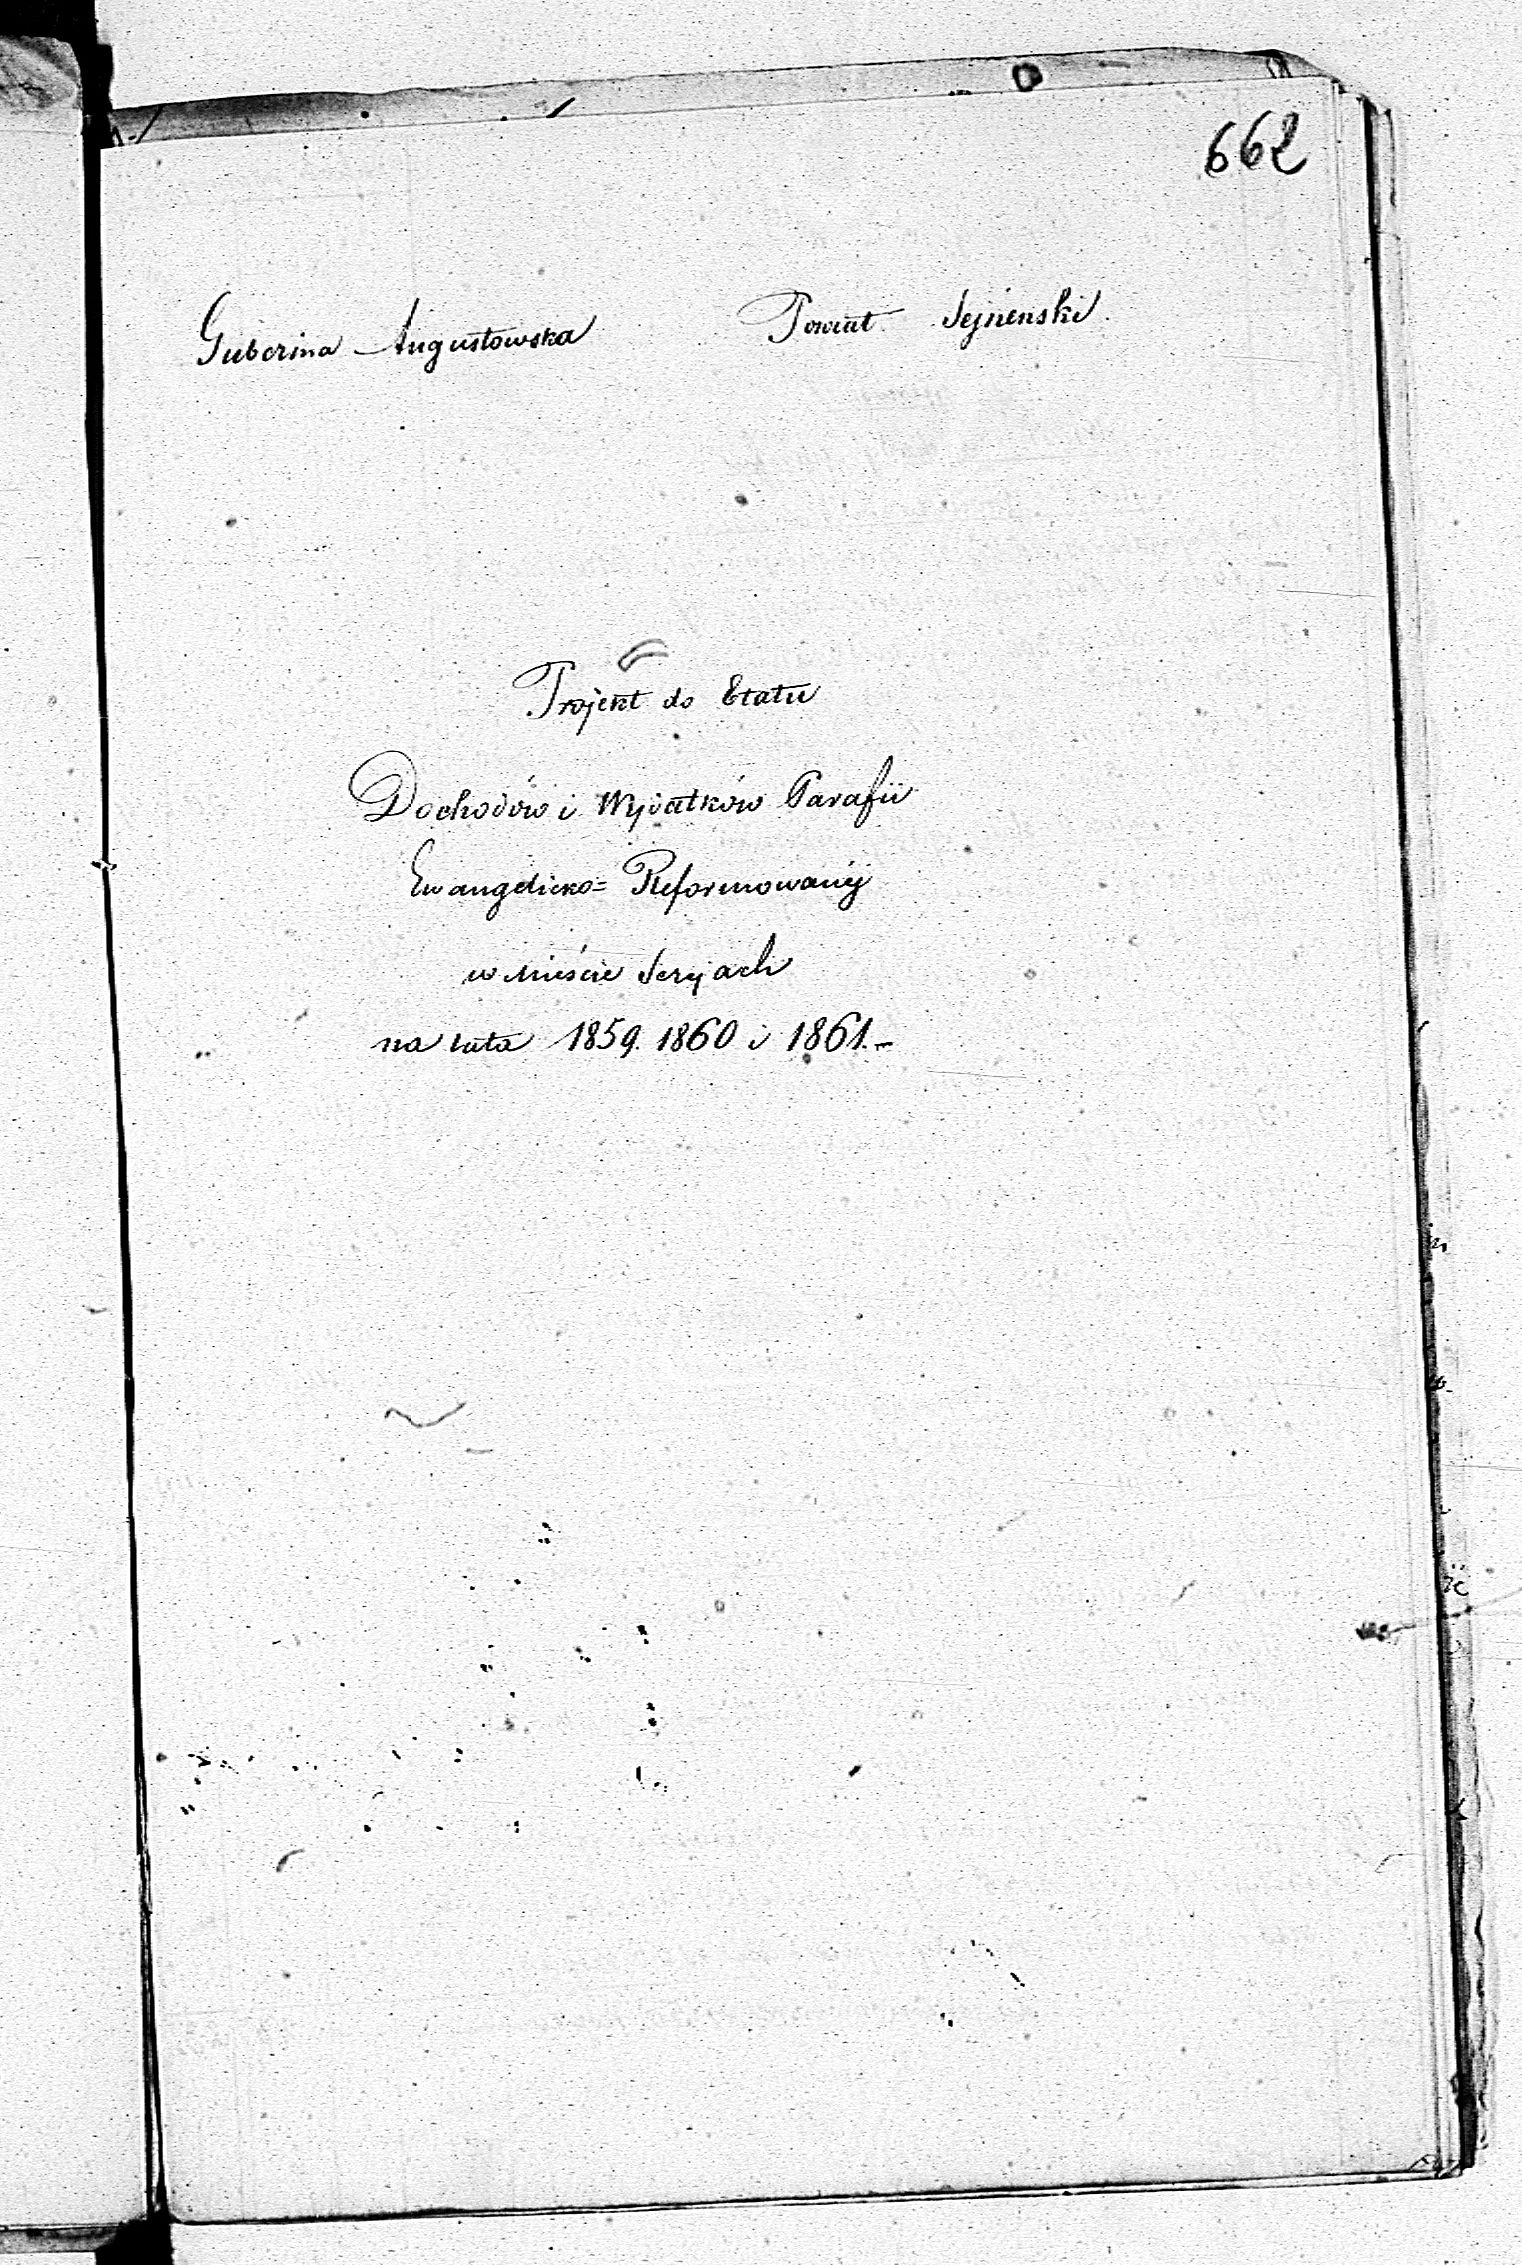 662
Gubernia Augustowska Powiat Sejnenski.
Projekt do Etatu
Dochodów i Wydatków Parafii
Ewangelicko= Reformowanéj
w mieście Serejach
na lata 1859. 1860 i 1861.-